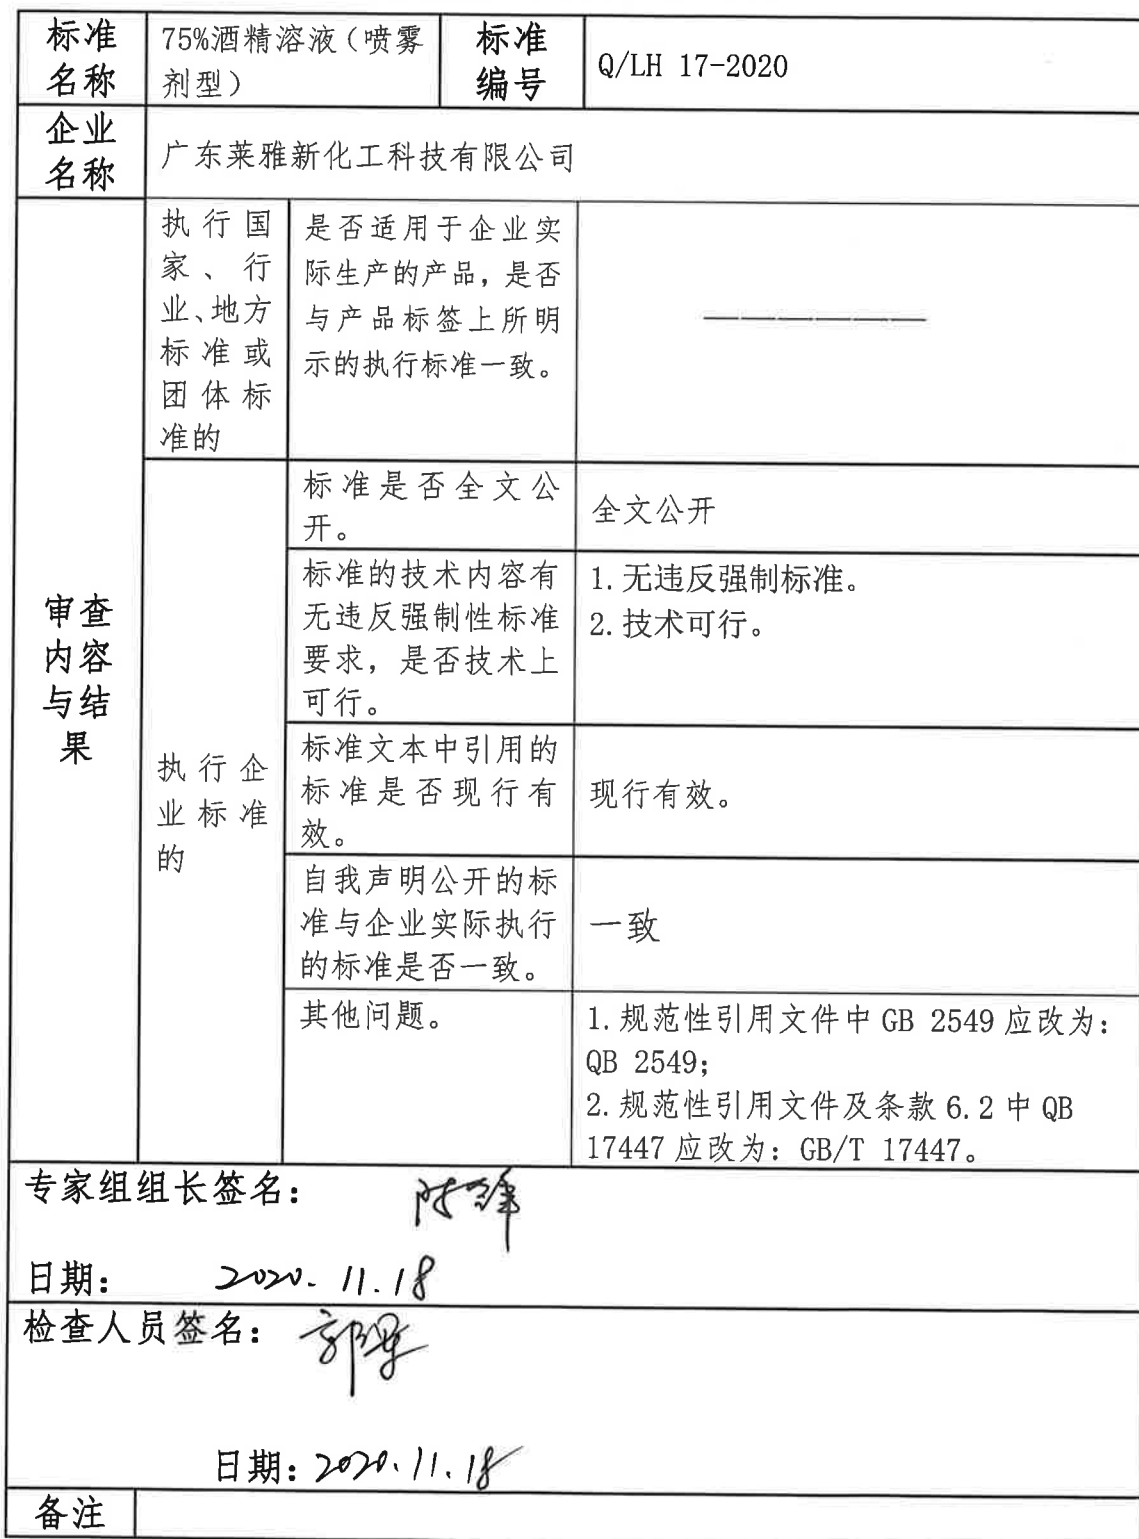 标准
名称
75%酒精溶液（喷雾
剂型）
标准
编号
Q/LH 17-2020
企业
名称
广东莱雅新化工科技有限公司
审查
内容
与结
果
执行国
家、行
业、地方
标准或
团体标
准的
是否适用于企业实
际生产的产品，是否
与产品标签上所明
示的执行标准一致。
——————
执行企
业标准
的
标准是否全文公
开。
全文公开
标准的技术内容有
无违反强制性标准
要求，是否技术上
可行。
1.无违反强制标准。
2.技术可行。
标准文本中引用的
标准是否现行有
效。
现行有效。
自我声明公开的标
准与企业实际执行
的标准是否一致。
一致
其他问题。
1.规范性引用文件中 GB 2549 应改为：
QB 2549；
2.规范性引用文件及条款 6.2 中 QB
17447 应改为：GB/T 17447。
专家组组长签名：
日期： 2020.11.18
检查人员签名：
日期：2020.11.18
备注